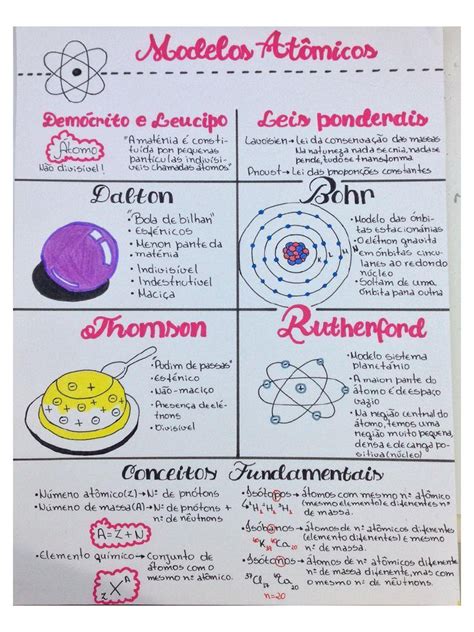 Modelos Atômicos
Demócrito e Leucipo
Átomo
Não divisível!
"A matéria é consti-
tuída por pequenas
partículas indivisí-
veis chamadas átomos"
Leis ponderais
Lavoisier → Lei da conservação das massas
Na natureza nada se cria, nada se
perde, tudo se transforma
Proust → Lei das proporções constantes
Dalton
"Bola de bilhar"
• Esféricos
• Menor parte da
matéria
• Indivisível
• Indestrutível
• Maciça
Bohr
K L M N
• Modelo das órbi-
tas estacionárias
• O elétron gravita
em órbitas circu-
lares ao redor do
núcleo
• Saltam de uma
órbita para outra
Thomson
• "Pudim de passas"
• Esférico
• Não-maciço
• Presença de elé-
trons
• Divisível
Rutherford
• Modelo sistema
planetário
• A maior parte do
átomo é de espaço
vazio
• Na região central do
átomo, temos uma
região muito pequena,
densa e de carga po-
sitiva (núcleo)
Conceitos Fundamentais
• Número atômico (Z) → Nº de prótons
• Número de massa (A) → Nº de prótons +
nº de nêutrons
A = Z + N
• Elemento químico → Conjunto de
átomos com o
mesmo nº atômico.
Z X A
• Isótopos → átomos com mesmo nº atômico
(mesmo elemento) e diferentes nº
de massa.
• Isóbaros → átomos de nº atômicos diferentes
(elemento diferentes) e mesmo
nº de massa.
40 K 40 Ca
19 20
• Isótonos → átomos de nº atômicos diferente
e de massa diferente, mas com
o mesmo nº de nêutrons.
37 Cl 40 Ca
17 20
n=20